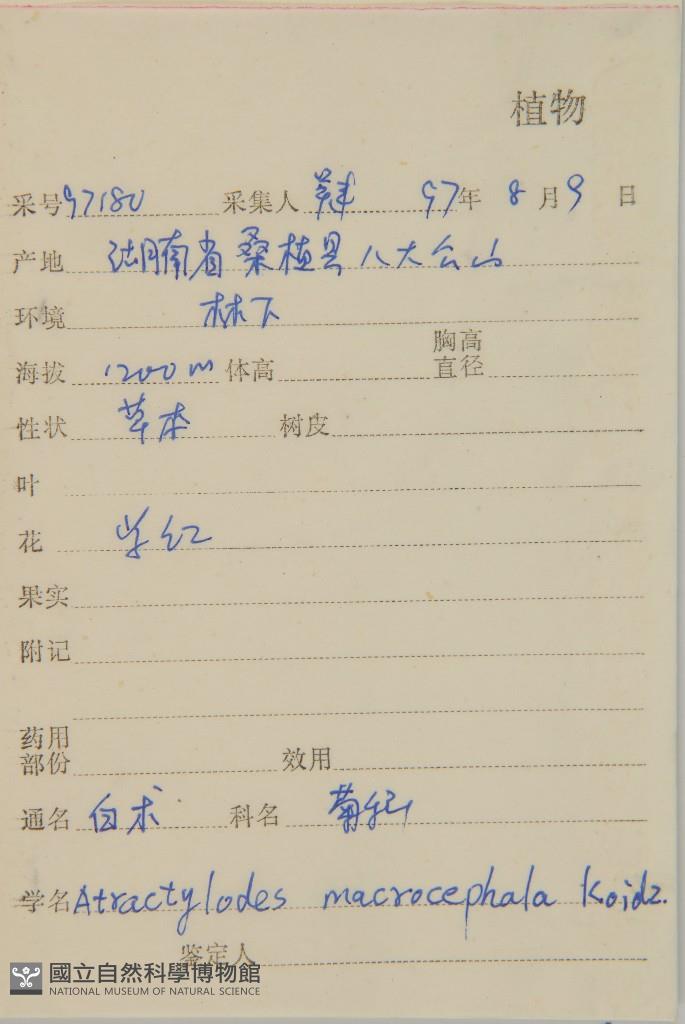 植物
采号 97180 采集人 97年 8月9日
产地 湖南省桑植县八大公山
环境 林下
胸高
海拔 1200m 体高 直径
性状 草本 树皮
叶
花 紫红
果实
附记
药用
部份 效用
通名 白术 科名 菊科
学名 Atractylodes macrocephala Koidz.
鉴定人
國立自然科學博物館
NATIONAL MUSEUM OF NATURAL SCIENCE